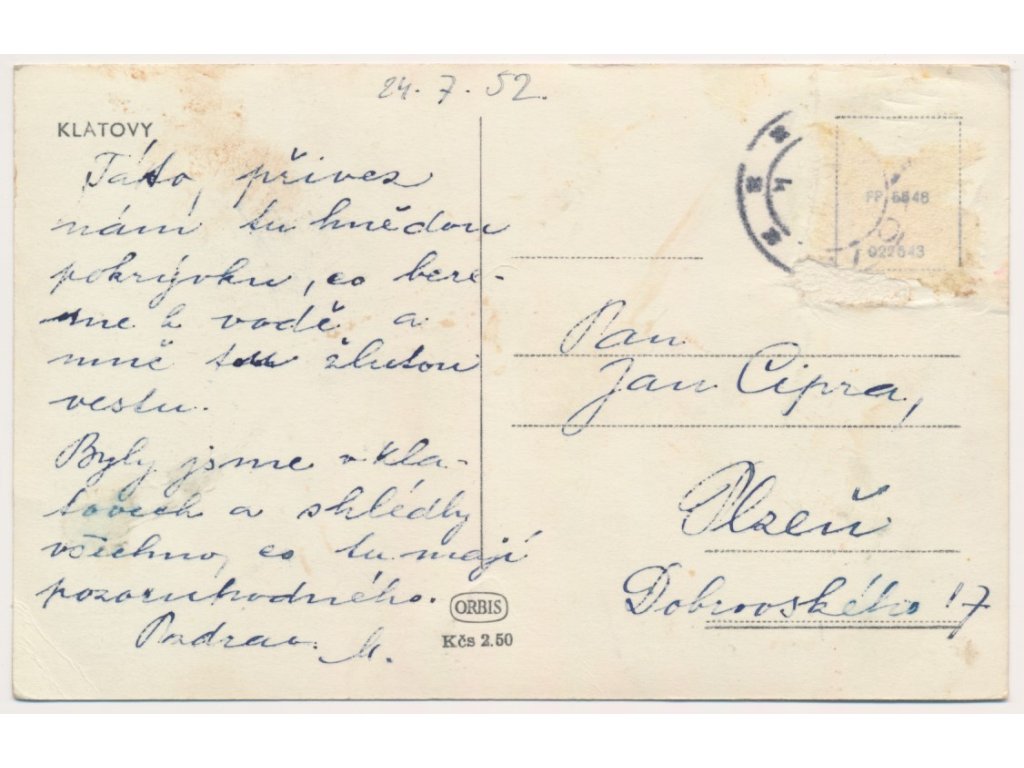 24. 7. 52.
KLATOVY
Táto, přivez
nám tu hnědou
pokrývku, co bere-
me k vodě a
mně tu žlutou
vestu.
Byly jsme v Kla-
tovech a shlédly
všechno, co tu mají
pozoruhodného.
Pozdrav. M.
ORBIS
Kčs 2.50
FP 5548
022543
Pan
Jan Cipra,
Plzeň
Dobrovského 17